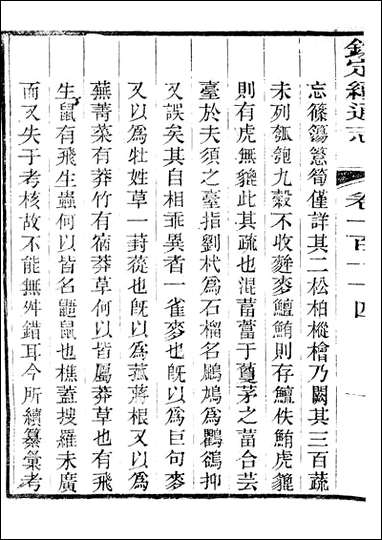 欽定續通志　卷一百七十四
忘篠簜簅筍僅詳其二松柏樅檜乃闕其三百蔬
未列瓠匏九穀不收麰麥鱣鮪則存鱣佚鮪虎貔
則有虎無貔此其疏也混葍蕾于藑茅之葍合芸
臺於夫須之臺指劉杙爲石榴名鷤鳩爲鸜鵒抑
又誤矣其自相乖異者一雀麥也旣以爲巨句麥
又以爲牡姓草一葑蓯也旣以爲菰蔣根又以爲
蕪菁菜有莽竹有宿莽草何以皆屬莽草也有飛
生鼠有飛生蠱何以皆名鼯鼠也樵蓋搜羅未廣
而又失于考核故不能無舛錯耳今所續纂彙考